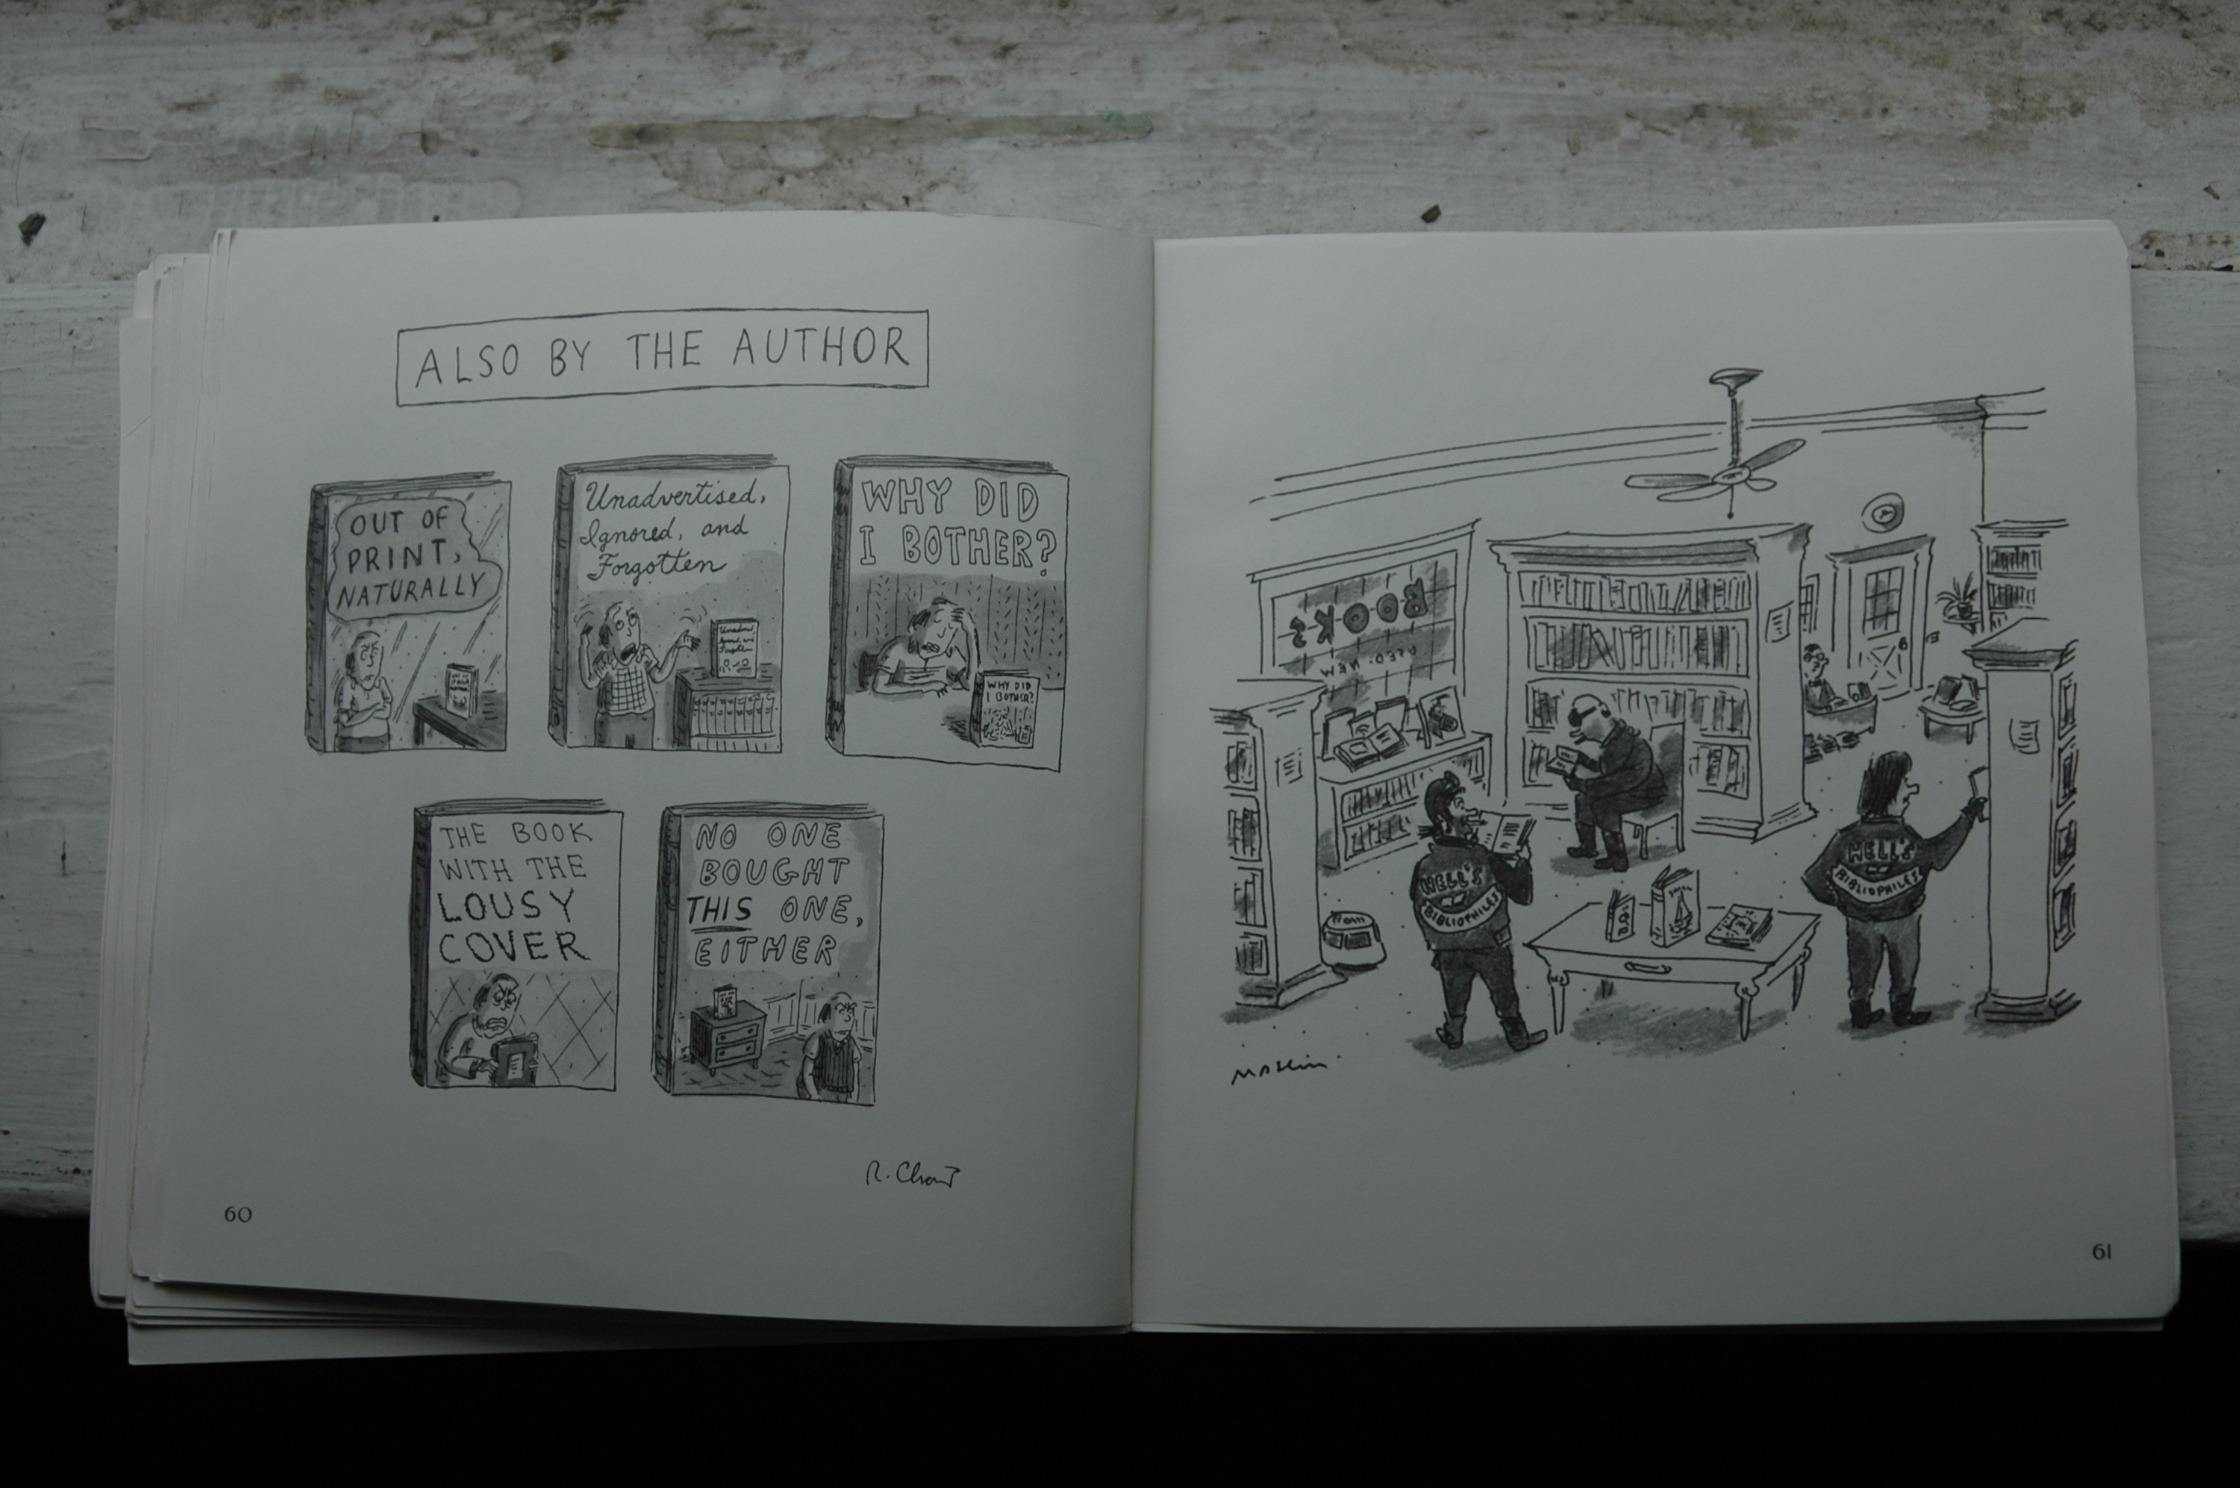 ALSO BY THE AUTHOR
OUT OF
PRINT,
NATURALLY
Unadvertised,
Ignored, and
Forgotten
Unadvertised,
Ignored, and
Forgotten
WHY DID
I BOTHER?
WHY DID
I BOTHER?
THE BOOK
WITH THE
LOUSY
COVER
NO ONE
BOUGHT
THIS ONE,
EITHER
R. Chast
60
BOOKS
USED · NEW
HELL'S
BIBLIOPHILES
HELL'S
BIBLIOPHILES
MASLIN
61